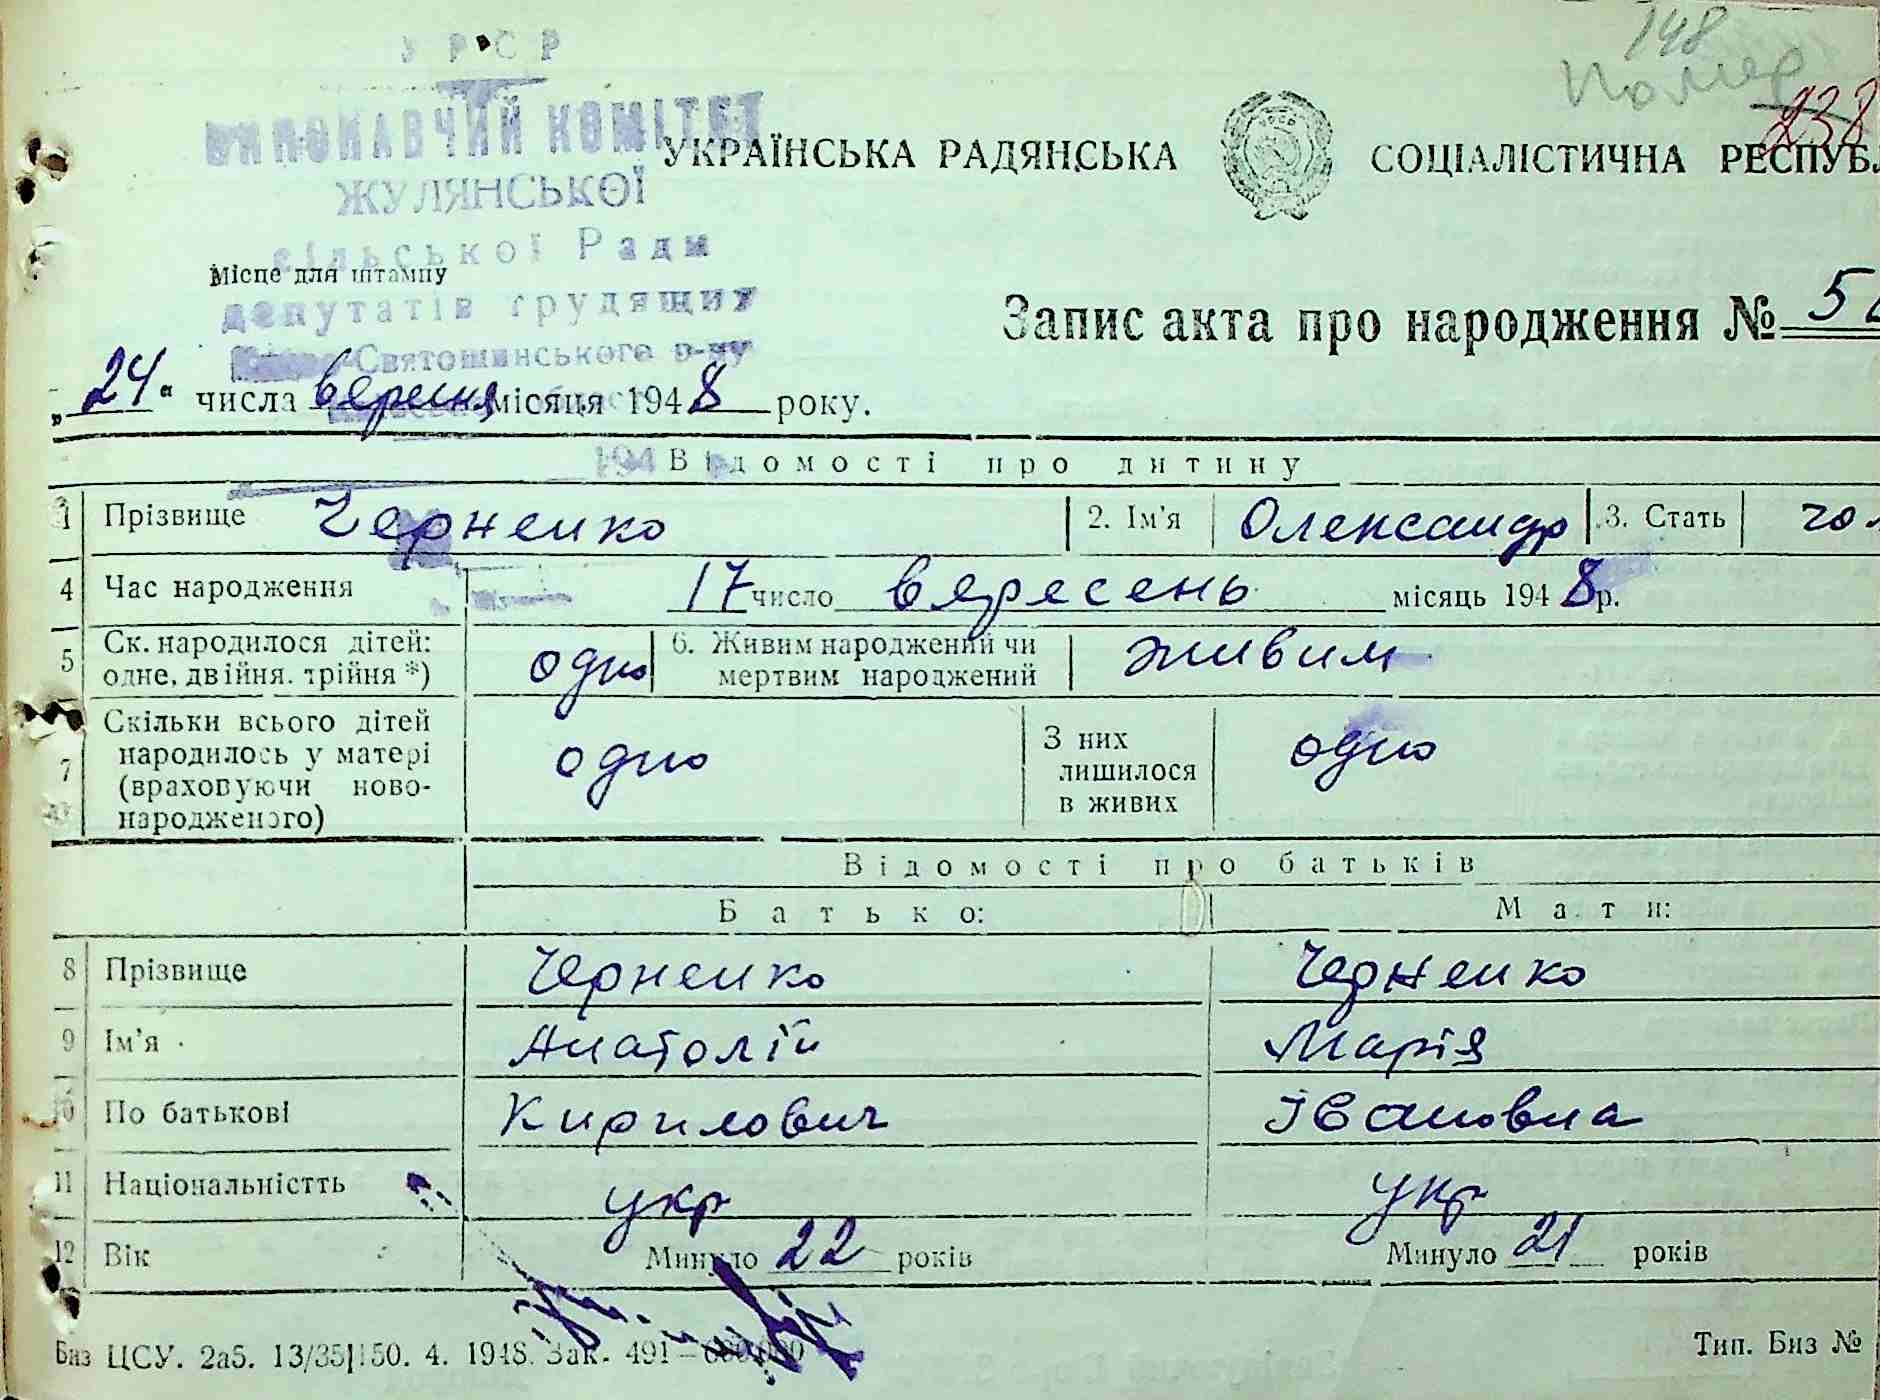 148
Помер
238
УРСР
ВИКОНАВЧИЙ КОМІТЕТ
ЖУЛЯНСЬКОЇ
сільської Ради
депутатів трудящих
Святошинського р-ну
УКРАЇНСЬКА РАДЯНСЬКА СОЦІАЛІСТИЧНА РЕСПУБЛ
Місце для штампу
Запис акта про народження № 5
„24“ числа вересня місяця 1948 року.
194
Відомості про дитину
1 Прізвище Черненко 2. Ім'я Олександр 3. Стать чол
4 Час народження 17 число вересень місяць 1948 р.
5 Ск. народилося дітей: одне, двійня, трійня *) одно 6. Живим народжений чи мертвим народжений живим
7 Скільки всього дітей народилось у матері (враховуючи ново-народженого) одно З них лишилося в живих одно
Відомості про батьків
Батько: Мати:
8 Прізвище Черненко Черненко
9 Ім'я Анатолій Марія
10 По батькові Кирилович Івановна
11 Національністть укр укр
12 Вік Минуло 22 років Минуло 21 років
Биз ЦСУ. 2а5. 13/35 150. 4. 1948. Зак. 491—600.000 Тип. Биз №